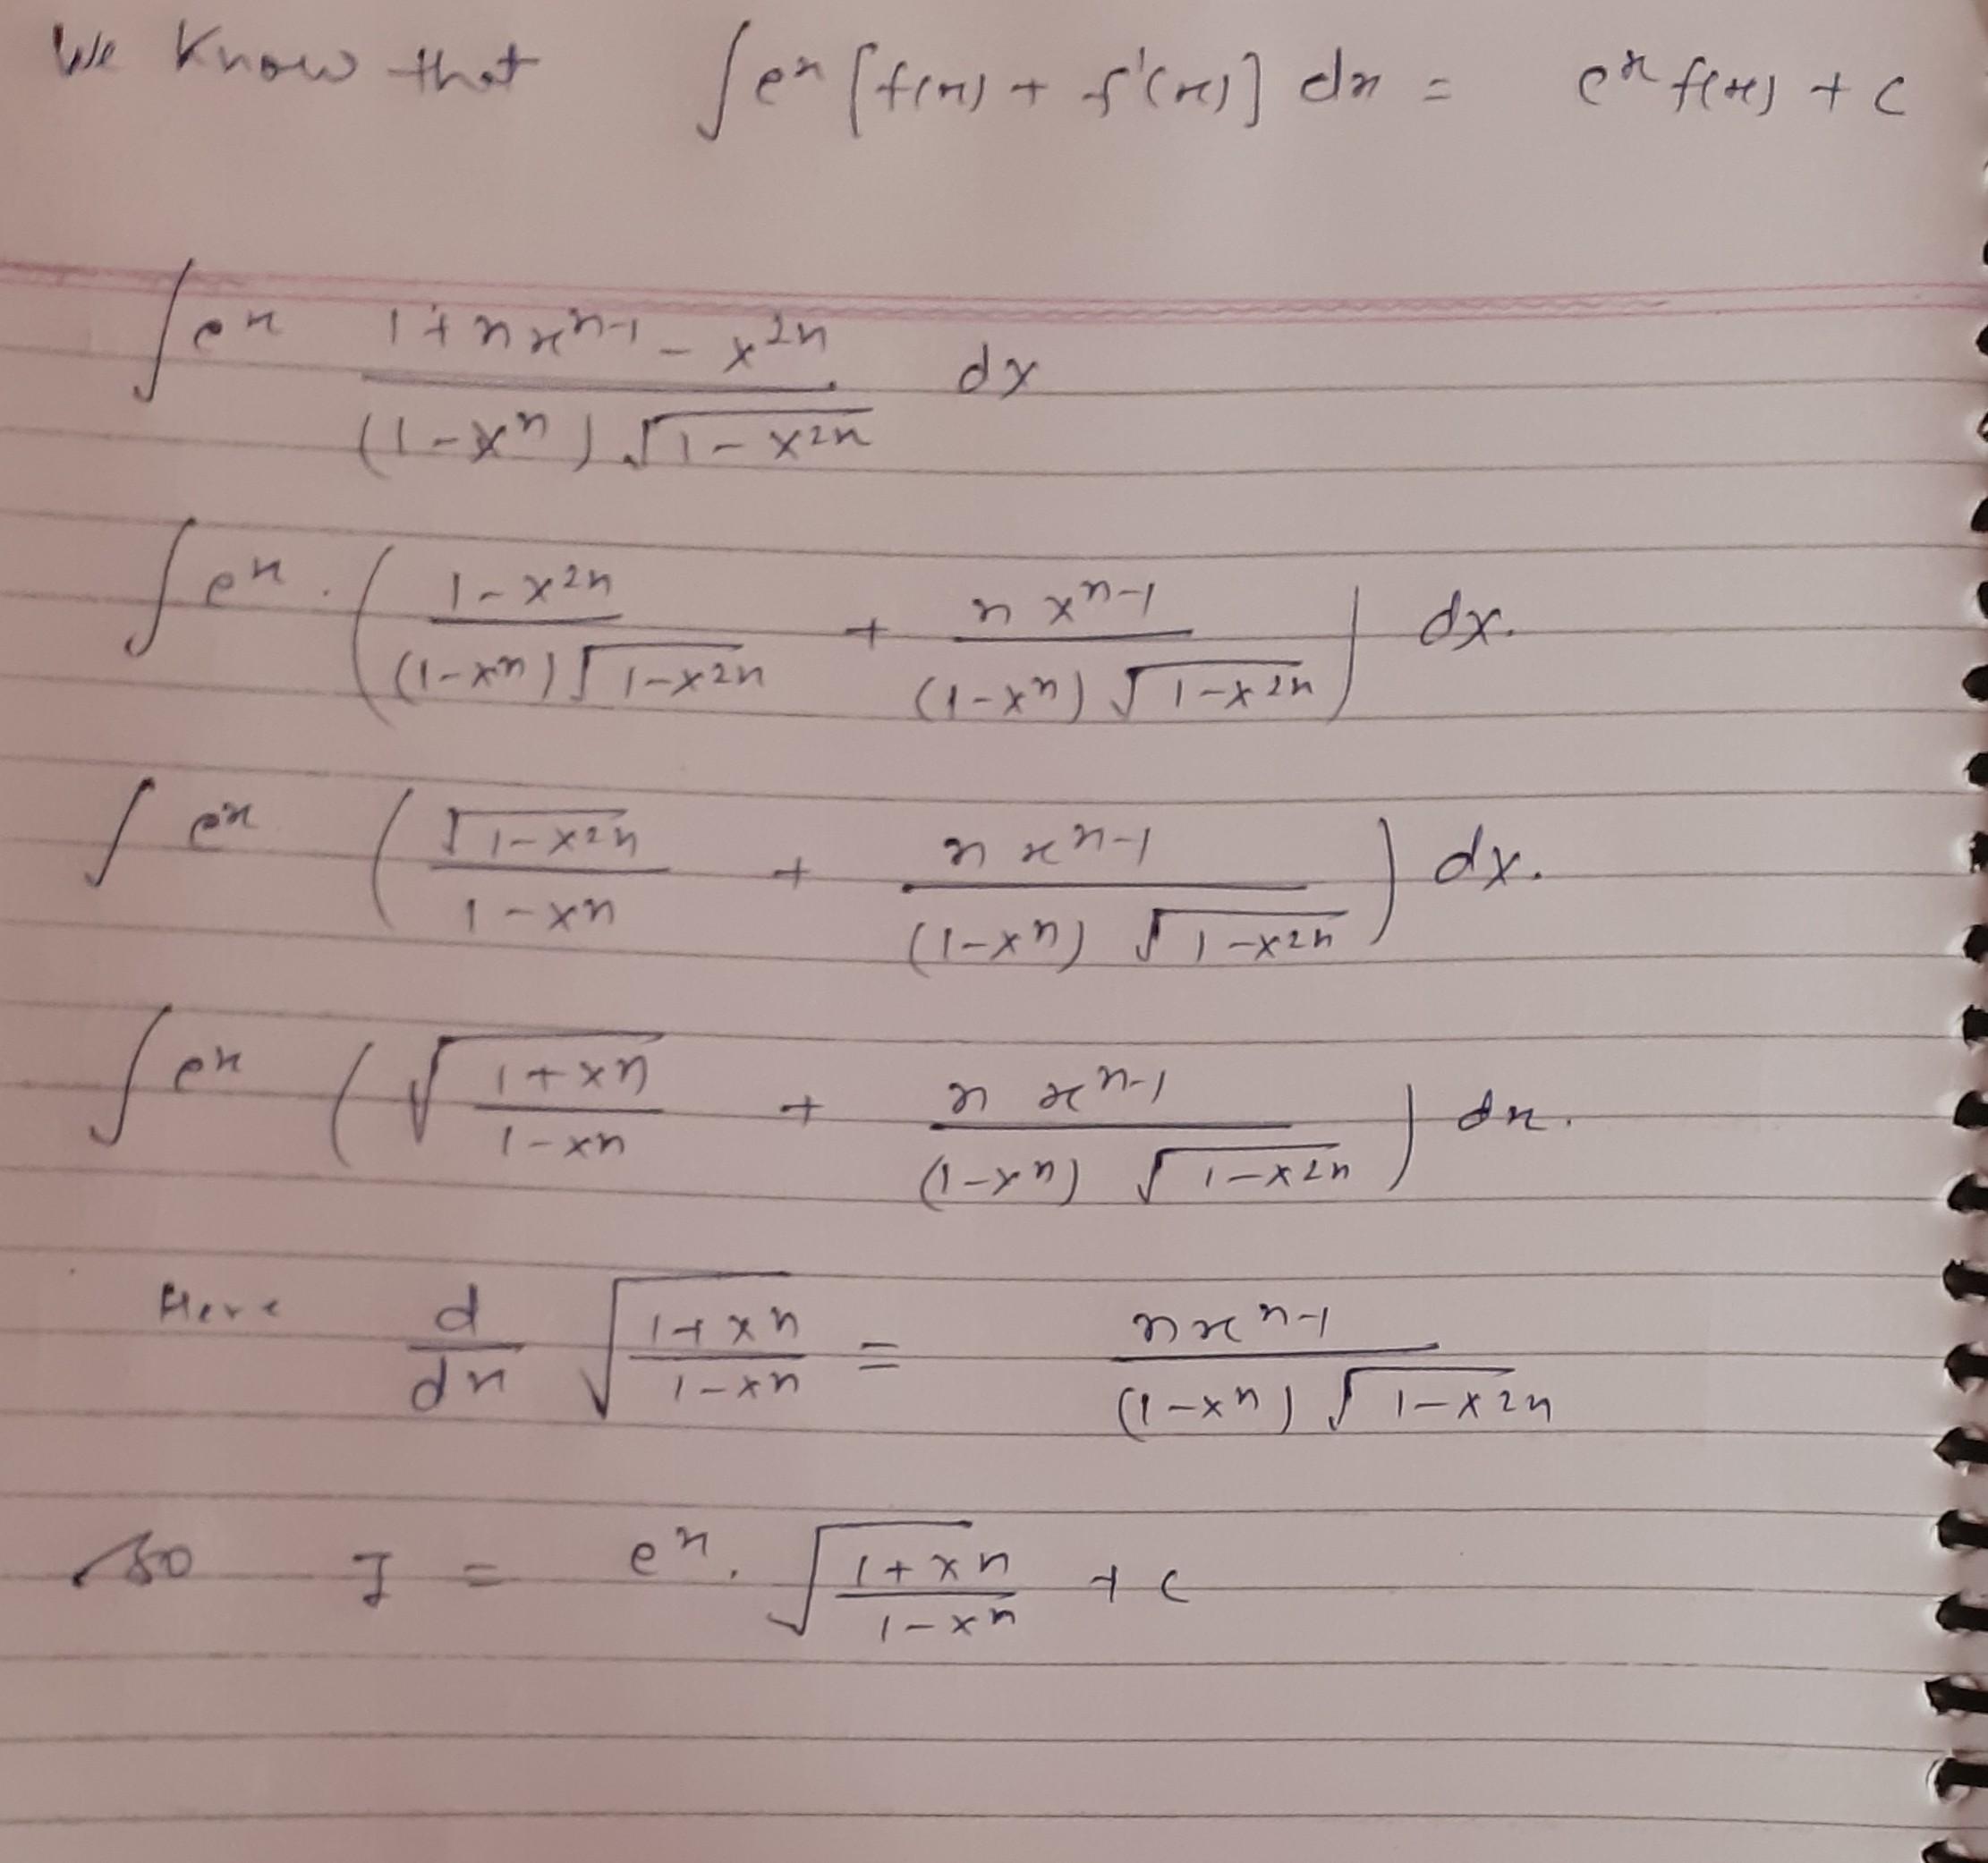 We Know that ∫eˣ [f(x) + f'(x)] dx = eˣ f(x) + c
∫eˣ (1 + nxⁿ⁻¹ - x²ⁿ) / ((1-xⁿ) √(1-x²ⁿ)) dx
∫eˣ . ( (1-x²ⁿ) / ((1-xⁿ) √(1-x²ⁿ)) + n xⁿ⁻¹ / ((1-xⁿ) √(1-x²ⁿ)) ) dx.
∫ eˣ ( √(1-x²ⁿ) / (1-xⁿ) + n xⁿ⁻¹ / ((1-xⁿ) √(1-x²ⁿ)) ) dx.
∫eˣ ( √((1+xⁿ) / (1-xⁿ)) + n xⁿ⁻¹ / ((1-xⁿ) √(1-x²ⁿ)) ) dx.
Here d/dx √((1+xⁿ) / (1-xⁿ)) = nxⁿ⁻¹ / ((1-xⁿ) √(1-x²ⁿ))
so I = eˣ . √((1+xⁿ) / (1-xⁿ)) + c